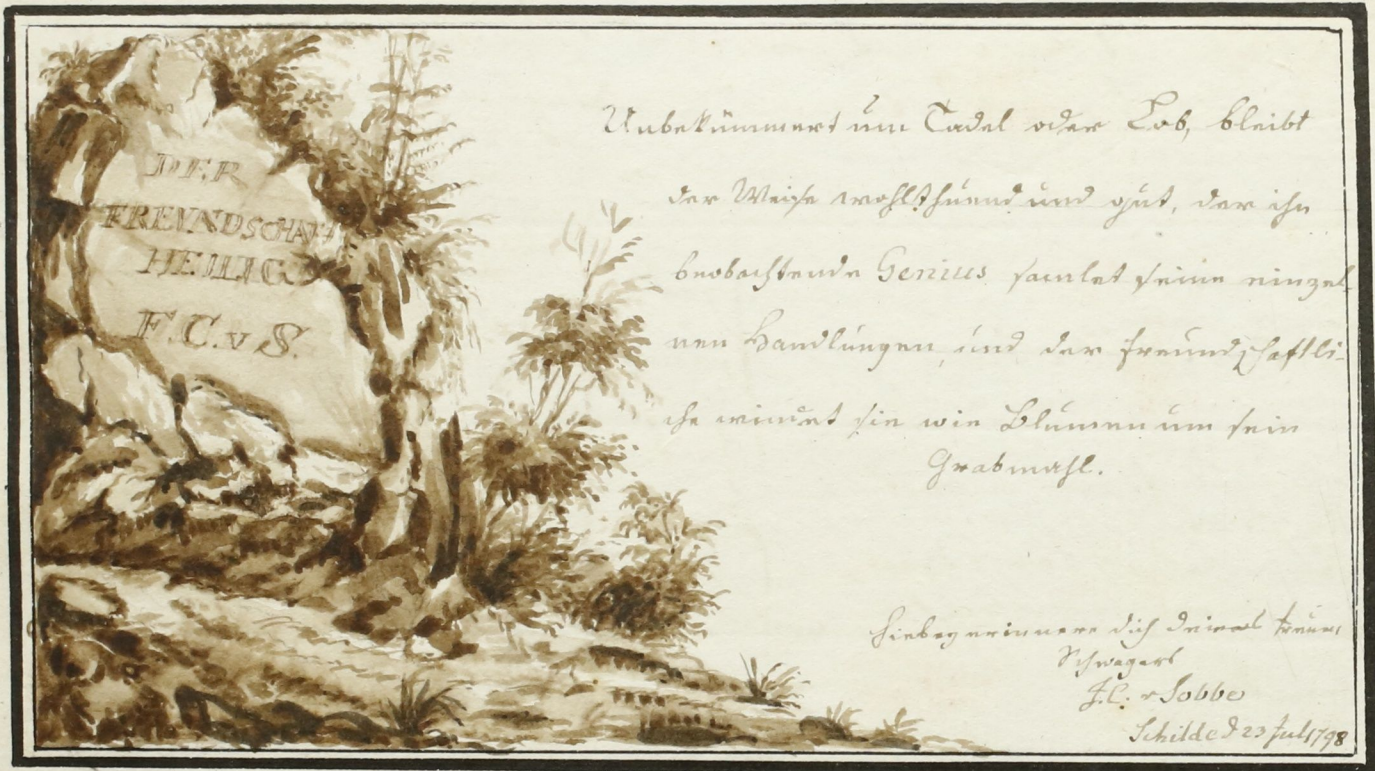 DER
FREVNDSCHAFT
HEILIG
F.C.v S.
Unbekümmert um Tadel oder Lob, bleibt
der Weise wohlthuend und gut, der ihn
beobachtende Genius samlet seine einzel-
nen Handlungen, und der freundschaftli-
che windet sie wie Blumen um sein
Grabmahl.
Hiebey erinnere dich deines treuen
Schwagers
F.C. v Sobbe
Schilde d 23 Jul 1798